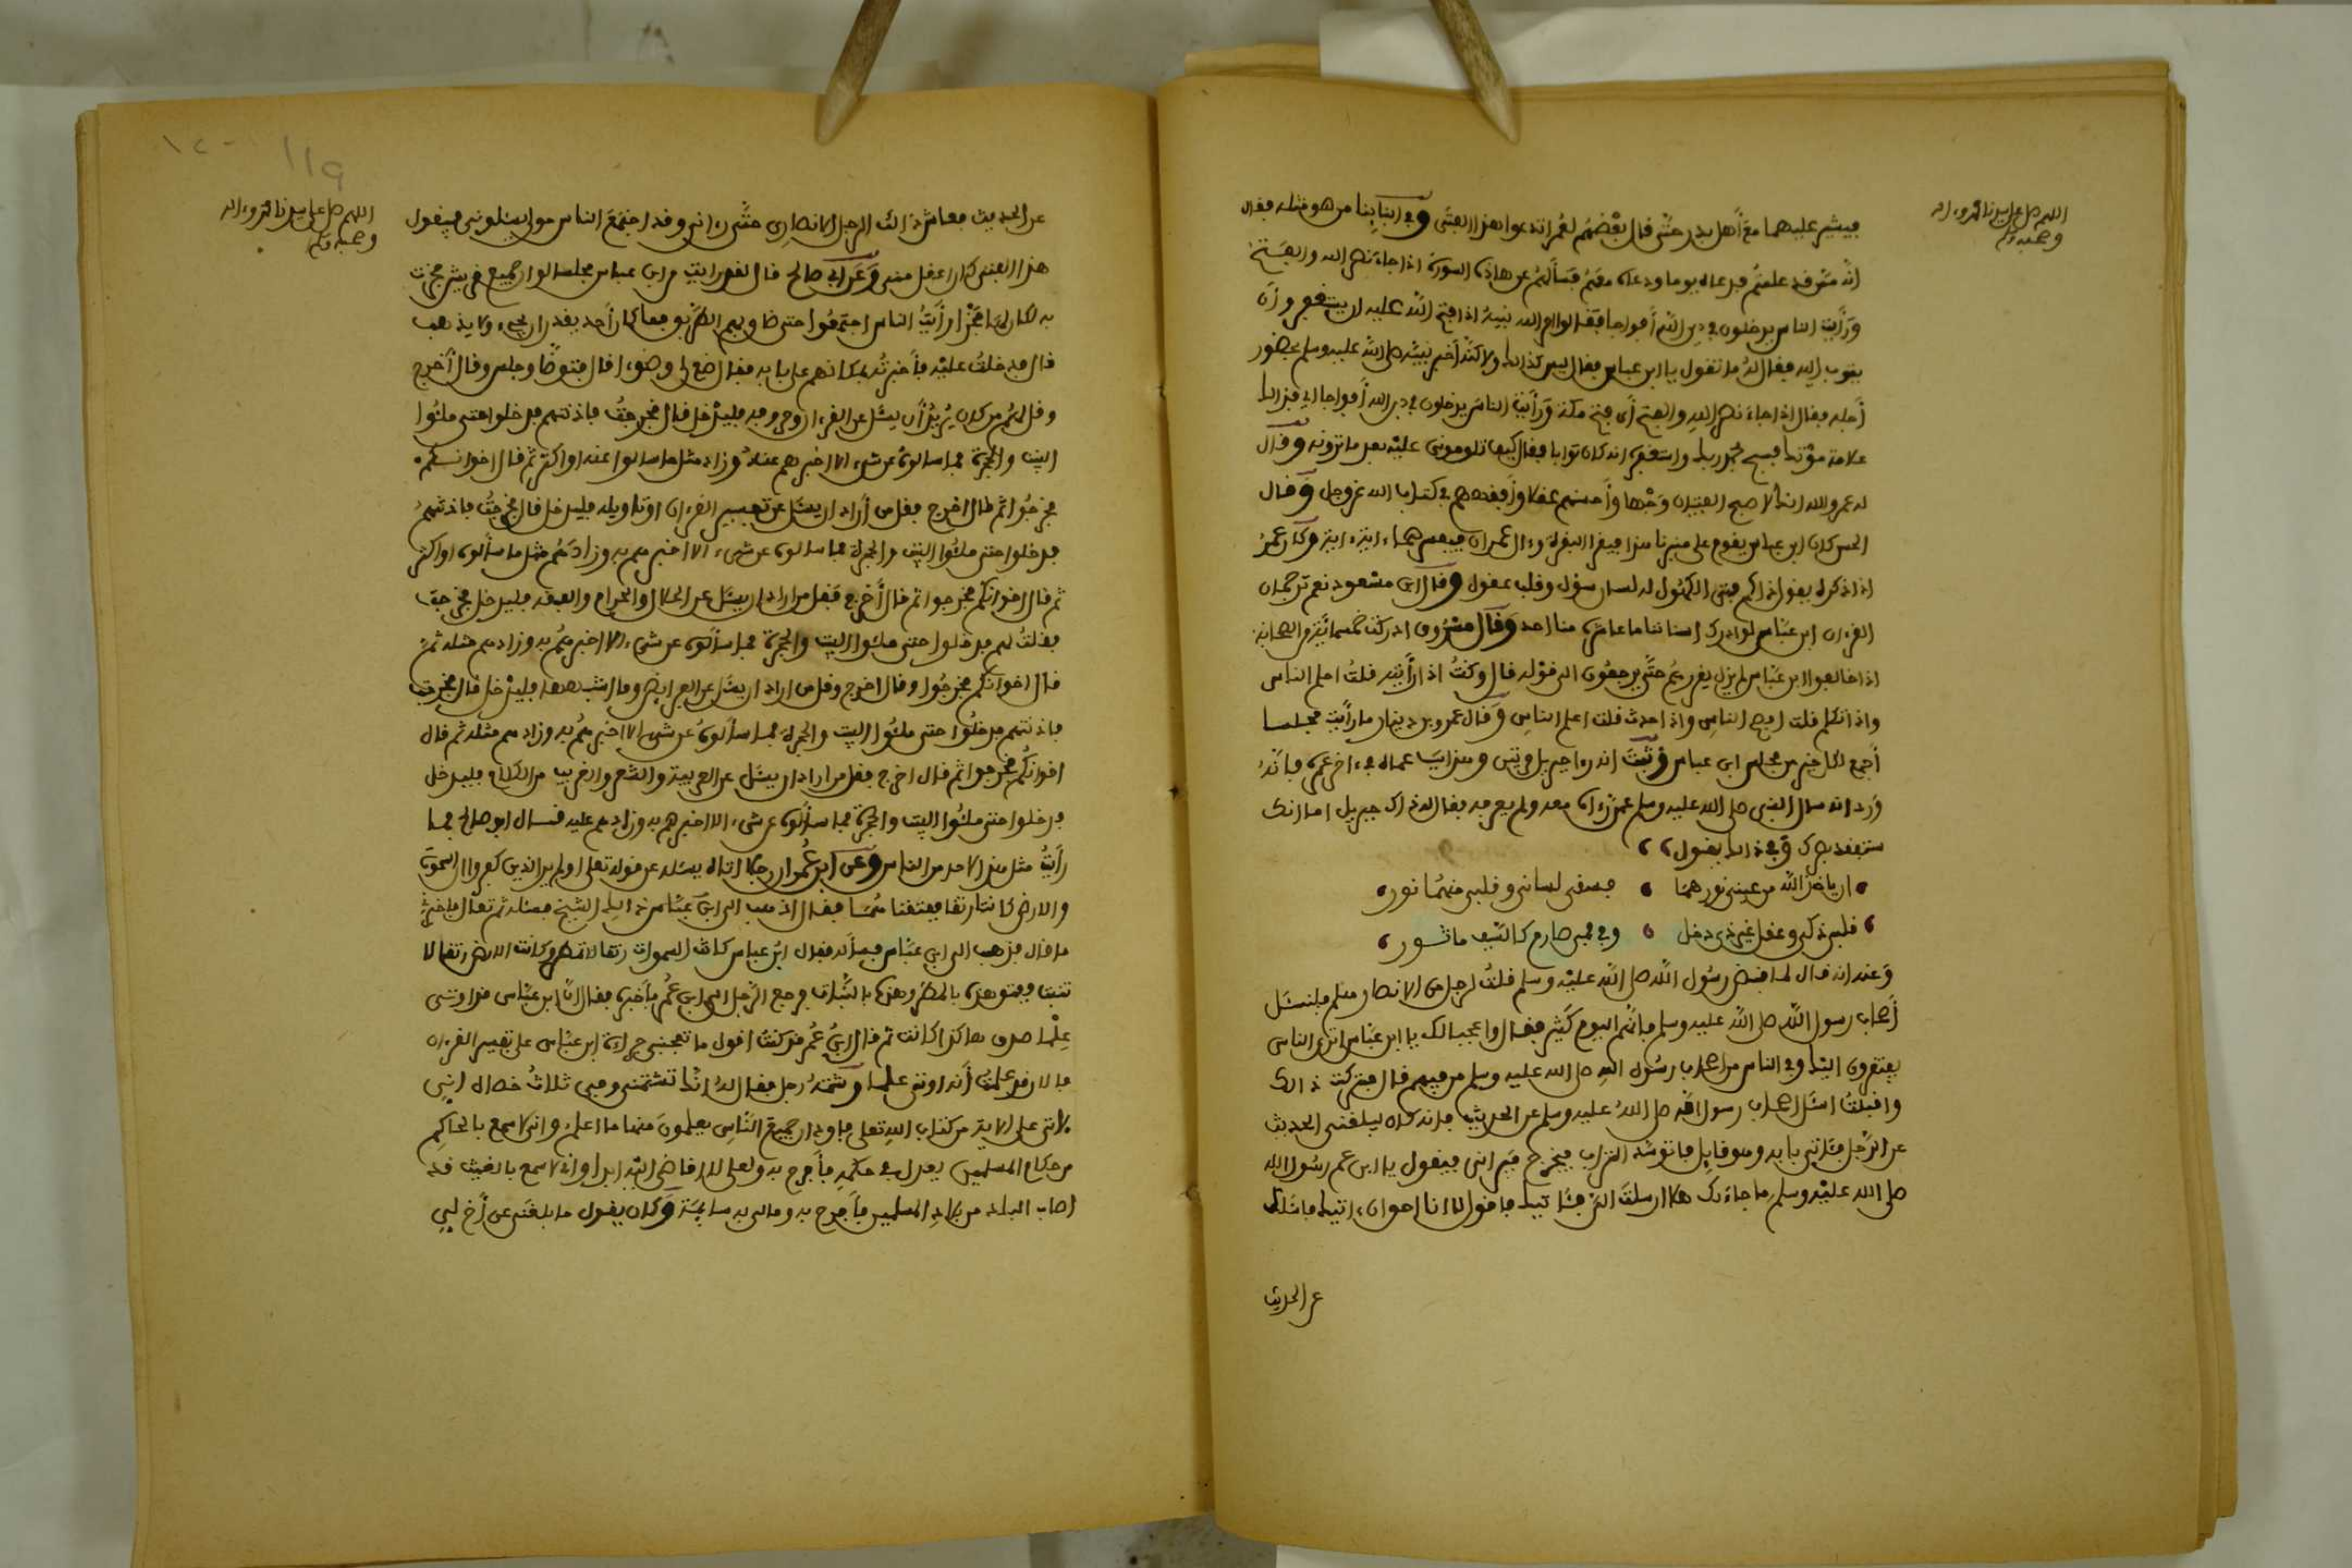 اللهم صل على سيدنا محمد وءاله
وصحبه وسلم
فيشير عليهما مع أهل بدر حتى قال بعضهم لعمر اتدعوا هذا الفتى وفي ابنائنا من هو مثله فقال
انه من قد علمتم فدعاه يوما ودعاه معهم فسألهم عن هاذه السورة اذا جاء نصر الله والفتح
ورأيت الناس يدخلون في دين الله أفواجا فقالوا امر الله نبيه اذا فتح الله عليه ان يستغفره وأن
يتوب اليه فقال له ما تقول يا ابن عباس فقال ليس كذالك ولاكنه أخبر نبيه صلى الله عليه وسلم بحضور
أجله فقال اذا جاء نصر الله والفتح أي فتح مكة ورأيت الناس يدخلون في دين الله أفواجا اي فذالك
علامة موتك فسبح بحمد ربك واستغفره انه كان توابا فقال كيف تلومونني عليه بعد ما ترونه وقال
له عمر والله انك لاصبح الفتيان وجها وأحسنهم عقلا وأفقههم في كتاب الله عز وجل وقال
الحسن كان ابن عباس يقوم على منبرنا هذا فيقرا البقرة وءال عمران فيفسرهما ءاية ءاية وكان عمر
اذا ذكره يقول ذاكم فتى الكهول له لسان سؤل وقلب عقول وقال ابن مسعود نعم ترجمان
القرءان ابن عباس لو ادرك اسناننا ما عاشره منا احد وقال مسروق ادركت خمسمائة من الصحابة
اذا خالفوا ابن عباس لم يزل يقررهم حتى يرجعون الى قوله قال وكنت اذا رأيته قلت اجمل الناس
واذا تكلم قلت افصح الناس واذا حدث قلت اعلم الناس وقال عمرو بن دينار ما رأيت مجلسا
أجمع لكل خير من مجلس ابن عباس وثبت انه راى جبريل مرتين وسبب عماه في ءاخر عمره فانه
ورد انه سال النبي صلى الله عليه وسلم عمن رءاه معه ولم يعرفه فقال له ذاك جبريل اما انك
ستفقد بصرك وفي ذالك يقول
ان ياخذ الله من عيني نورهما ففي لساني وقلبي منهما نور
قلبي ذكي وعقلي غير ذي دخل وفي فمي صارم كالسيف ماثور
وعنه انه قال لما قبض رسول الله صلى الله عليه وسلم قلت لرجل من الانصار هلم فلنسئل
أصحاب رسول الله صلى الله عليه وسلم فانهم اليوم كثير فقال واعجبا لك يا ابن عباس اترى الناس
يفتقرون اليك وفي الناس من اصحاب رسول الله صلى الله عليه وسلم من فيهم قال فتركت ذالك
واقبلت اسئل اصحاب رسول الله صلى الله عليه وسلم عن الحديث فانه كان ليبلغني الحديث
عن الرجل فئاتي بابه وهو قايل فاتوسد التراب فيخرج فيراني فيقول يا ابن عم رسول الله
صلى الله عليه وسلم ما جاء بك هلا ارسلت الي فئاتيك فاقول لا انا احق ان ءاتيك فاسئلك
عن الحديث
١٢٠
119
اللهم صل على سيدنا محمد وءاله
وصحبه وسلم
عن الحديث فعاش ذالك الرجل الانصاري حتى رءاني وقد اجتمع الناس حولي يسئلونني فيقول
هذا الفتى كان اعقل مني وعن ابي صالح قال لقد رايت من ابن عباس مجلسا لو ان جميع قريش فخرت
به لكان لها فخرا رأيت الناس اجتمعوا حتى ضاق بهم الطريق فما كان أحد يقدر ان يجيء ولا يذهب
قال فدخلت عليه فأخبرته بمكانهم على بابه فقال ضع لي وضوءا قال فتوضا وجلس وقال أخرج
وقل لهم من كان يريد أن يسئل عن القرءان وحروفه فليدخل قال فخرجت فاذنتهم فدخلوا حتى ملئوا
البيت والحجرة فما سالوه عن شيء الا اخبرهم عنه وزادهم مثل ما سالوا عنه او اكثر ثم قال اخوانكم
فخرجوا ثم قال اخرج فقل من أراد ان يسئل عن تفسير القرءان او تاويله فليدخل قال فخرجت فاذنتهم
فدخلوا حتى ملئوا البيت والحجرة فما سالوه عن شيء الا اخبرهم به وزادهم مثل ما سألوه او اكثر
ثم قال اخوانكم فخرجوا ثم قال أخرج فقل من اراد ان يسئل عن الحلال والحرام والفقه فليدخل فخرجت
فقلت لهم فدخلوا حتى ملئوا البيت والحجرة فما سألوه عن شيء الا اخبرهم به وزادهم مثله ثم
قال اخوانكم فخرجوا وقال اخرج وقل من اراد ان يسئل عن الفرايض وما اشبهها فليدخل قال فخرجت
فاذنتهم فدخلوا حتى ملئوا البيت والحجرة فما سألوه عن شيء الا اخبرهم به وزادهم مثله ثم قال
اخوانكم فخرجوا ثم قال اخرج فقل من اراد ان يسئل عن العربية والشعر والغريب من الكلام فليدخل
فدخلوا حتى ملئوا البيت والحجرة فما سألوه عن شيء الا اخبرهم به وزادهم عليه قال ابو صالح فما
رأيت مثل هذا لاحد من الناس وعن ابن عمر ان رجلا اتاه يسئله عن قوله تعلى اولم ير الذين كفروا ان السموت
والارض كانتا رتقا ففتقناهما فقال اذهب الى ابن عباس ذالك الشيخ فسئله ثم تعال فاخبرني
ما قال فذهب الى ابن عباس فسأله فقال ابن عباس كانت السموات رتقا لا تمطر وكانت الارض رتقا لا
تنبت ففتق هذه بالمطر وهذه بالنبات فرجع الرجل الى ابن عمر فأخبره فقال ان ابن عباس قد اوتي
علما صدق هاكذا كانت ثم قال ابن عمر قد كنت اقول ما تعجبني جرءاة ابن عباس على تفسير القرءان
فالان قد علمت أنه اوتي علما وشتمه رجل فقال له انك تشتمني وفي ثلاث خصال اني
لاتي على الاية من كتاب الله تعلى فاود ان جميع الناس يعلمون منها ما اعلم وانى لاسمع بالحاكم
من حكام المسلمين يعدل في حكمه فأفرح به ولعلى لا اقاضي اليه ابدا واني لاسمع بالغيث قد
اصاب البلد من بلاد المسلمين فأفرح به ومالي به سايمة وكان يقول ما بلغني عن أخ لي